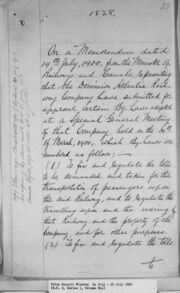 1828.
On a Memorandum dated
19th July, 1900, from the Minister of
Railways and Canals, representing
that the Dominion Atlantic Rail-
way Company have submitted for
approval, certain By-laws adopted
at a Special General Meeting
of that Company, held on the 30th
of March, 1900, which By-Laws are
numbered as follows:—
(1) To fix and regulate the tolls
to be demanded and taken for the
Transportation of passengers upon
the said Railway, and to regulate the
travelling upon and the using of
that Railway and the property of the
Company and for other purposes.
(2) To fix and regulate the tolls
to
Privy Council Minutes